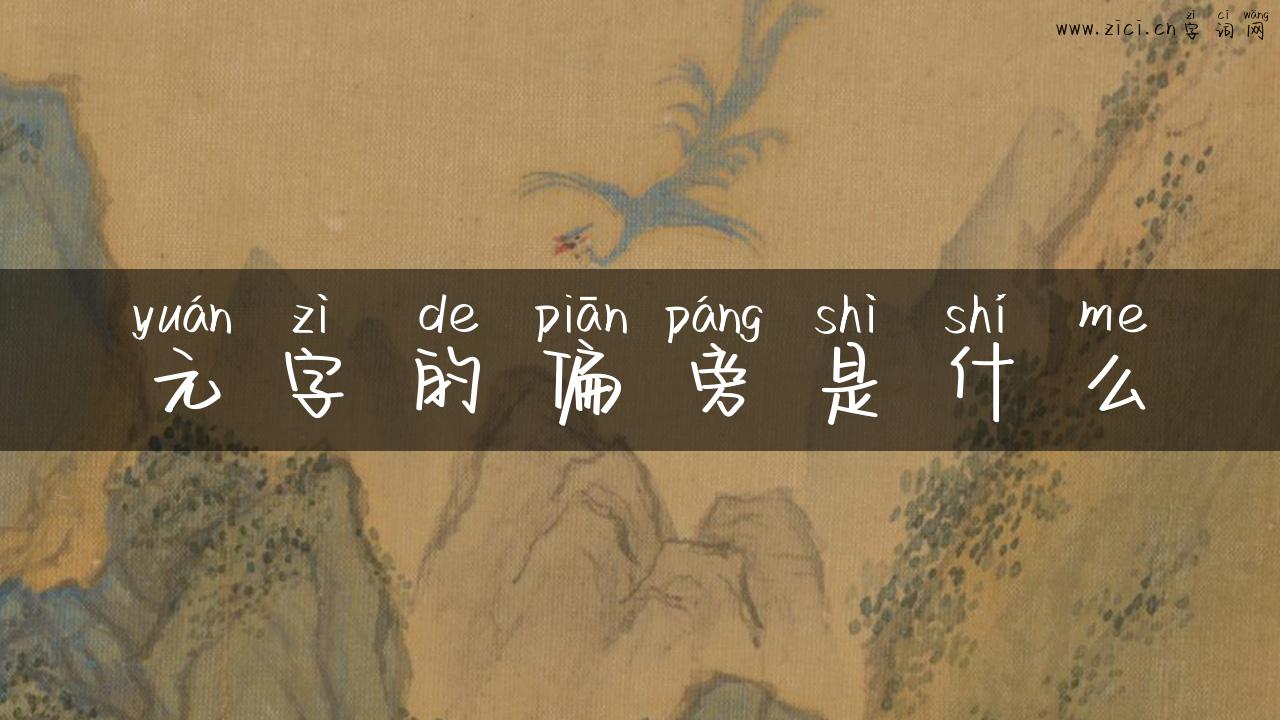 zì cì wǎng
www.zici.cn字词网
yuán zì de piān páng shì shí me
元字的偏旁是什么